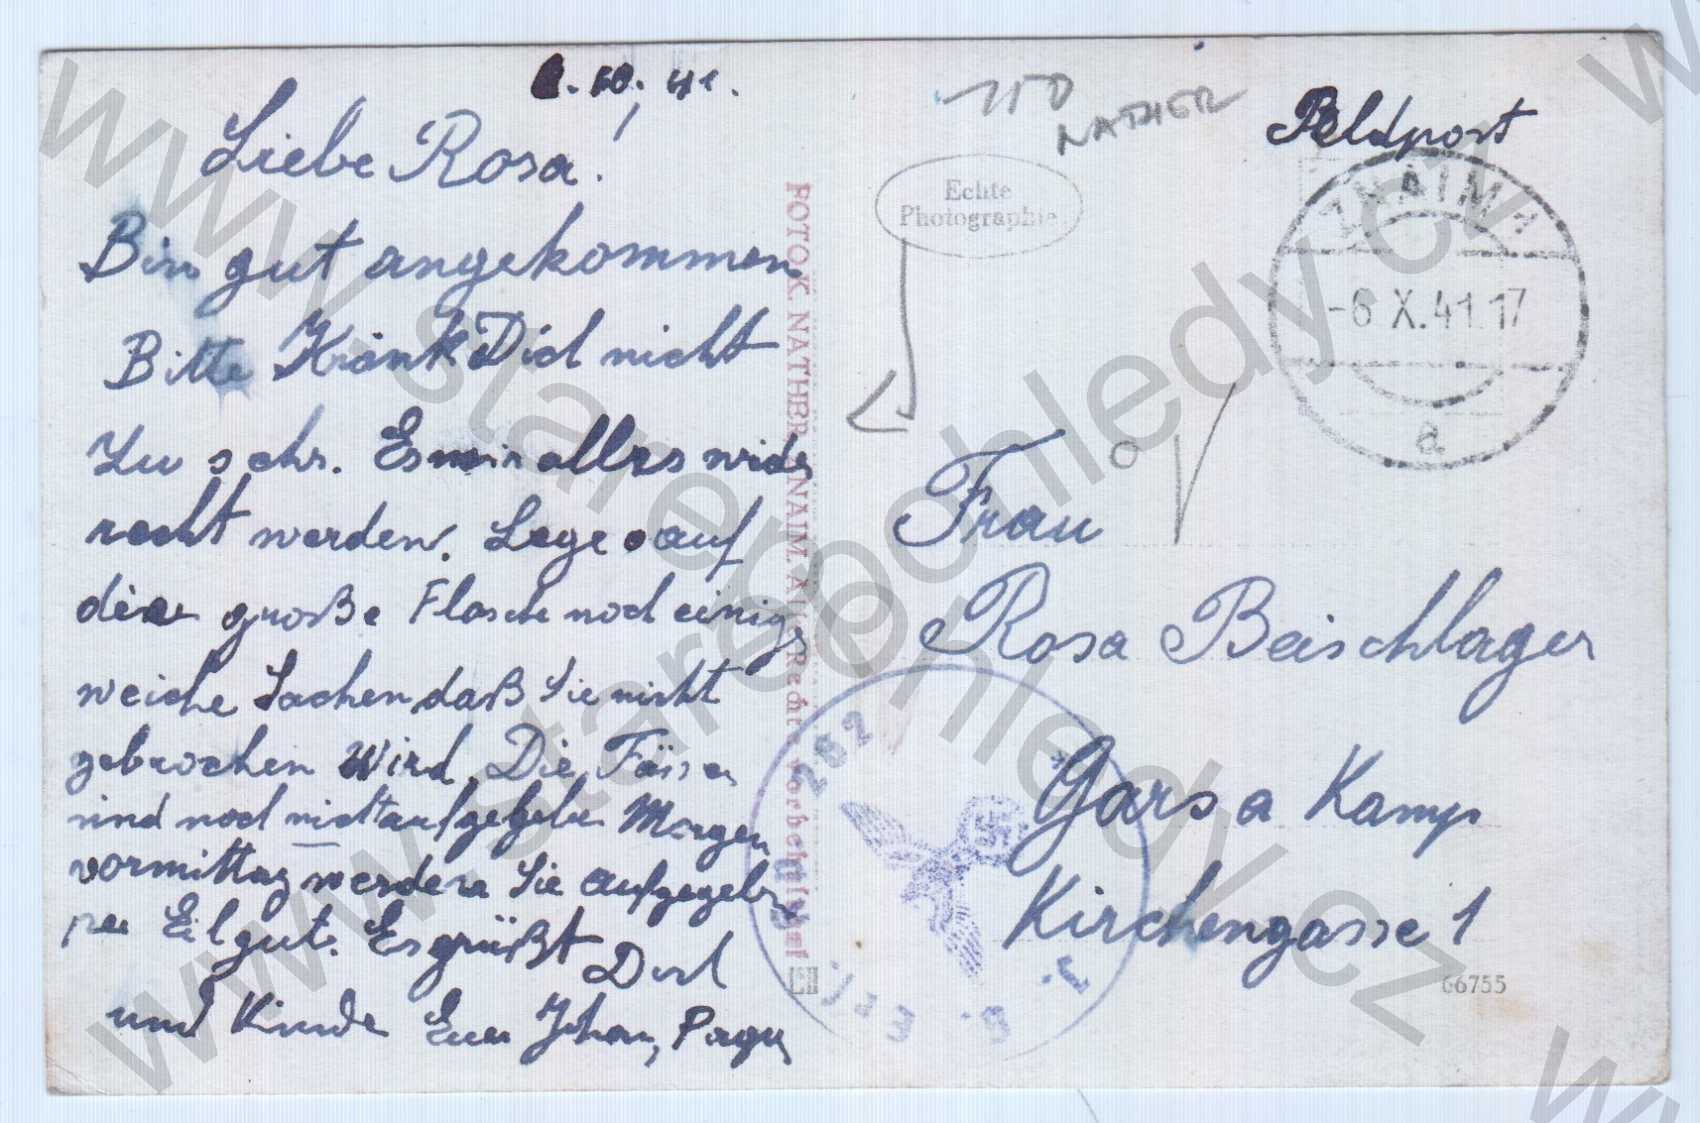 .10.41.
Liebe Rosa!
Bin gut angekommen
Bitte Kränk Dich nicht
zu sehr. Es wird alles wider
recht werden. Lege auf
die große Flasche noch einige
weiche Sachen daß Sie nicht
gebrochen wird. Die Fässer
sind noch nicht aufgegeben Morgen
vormittag werden Sie aufgegeben
per Eilgut. Es grüßt Dich
und Kinder Euer Johan,
FOTO K. NATHER ZNAIM. Alle Rechte vorbehalten!
150
NATHER
Echte
Photographie
Feldpost
ZNAIM 1
-6.X.41.17
a
Frau
Rosa Beischlager
Gars a Kamp
Kirchengasse 1
66755
www.starepohledy.cz
www.starepohledy.cz